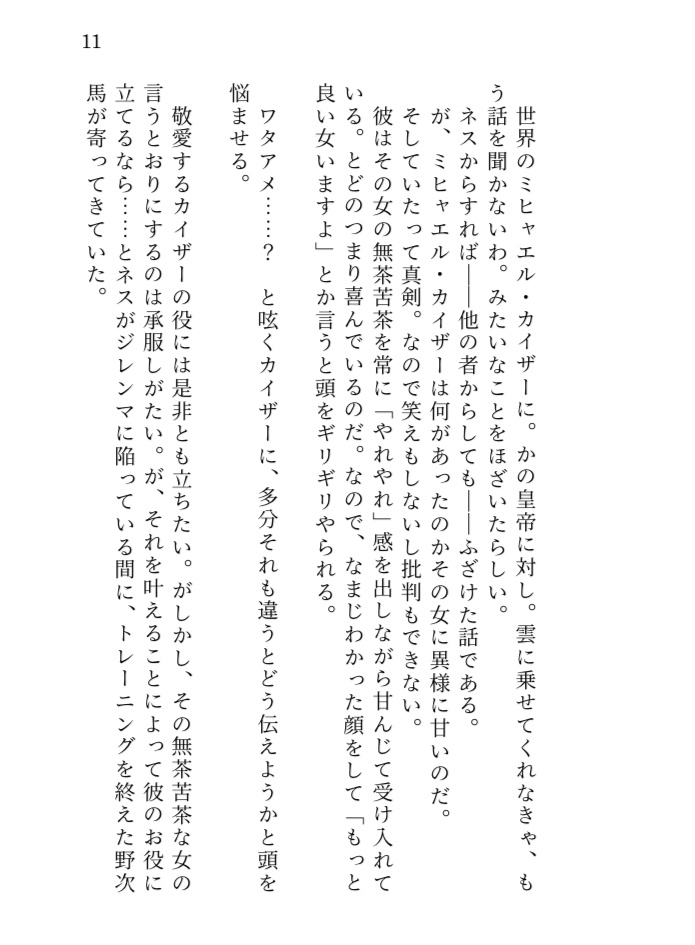 11
　世界のミヒャエル・カイザーに。かの皇帝に対し。雲に乗せてくれなきゃ、も
う話を聞かないわ。みたいなことをほざいたらしい。
　ネスからすれば――他の者からしても――ふざけた話である。
　が、ミヒャエル・カイザーは何があったのかその女に異様に甘いのだ。
　そしていたって真剣。なので笑えもしないし批判もできない。
　彼はその女の無茶苦茶を常に「やれやれ」感を出しながら甘んじて受け入れて
いる。とどのつまり喜んでいるのだ。なので、なまじわかった顔をして「もっと
良い女いますよ」とか言うと頭をギリギリやられる。
　ワタアメ……？　と呟くカイザーに、多分それも違うとどう伝えようかと頭を
悩ませる。
　敬愛するカイザーの役には是非とも立ちたい。がしかし、その無茶苦茶な女の
言うとおりにするのは承服しがたい。が、それを叶えることによって彼のお役に
立てるなら……とネスがジレンマに陥っている間に、トレーニングを終えた野次
馬が寄ってきていた。